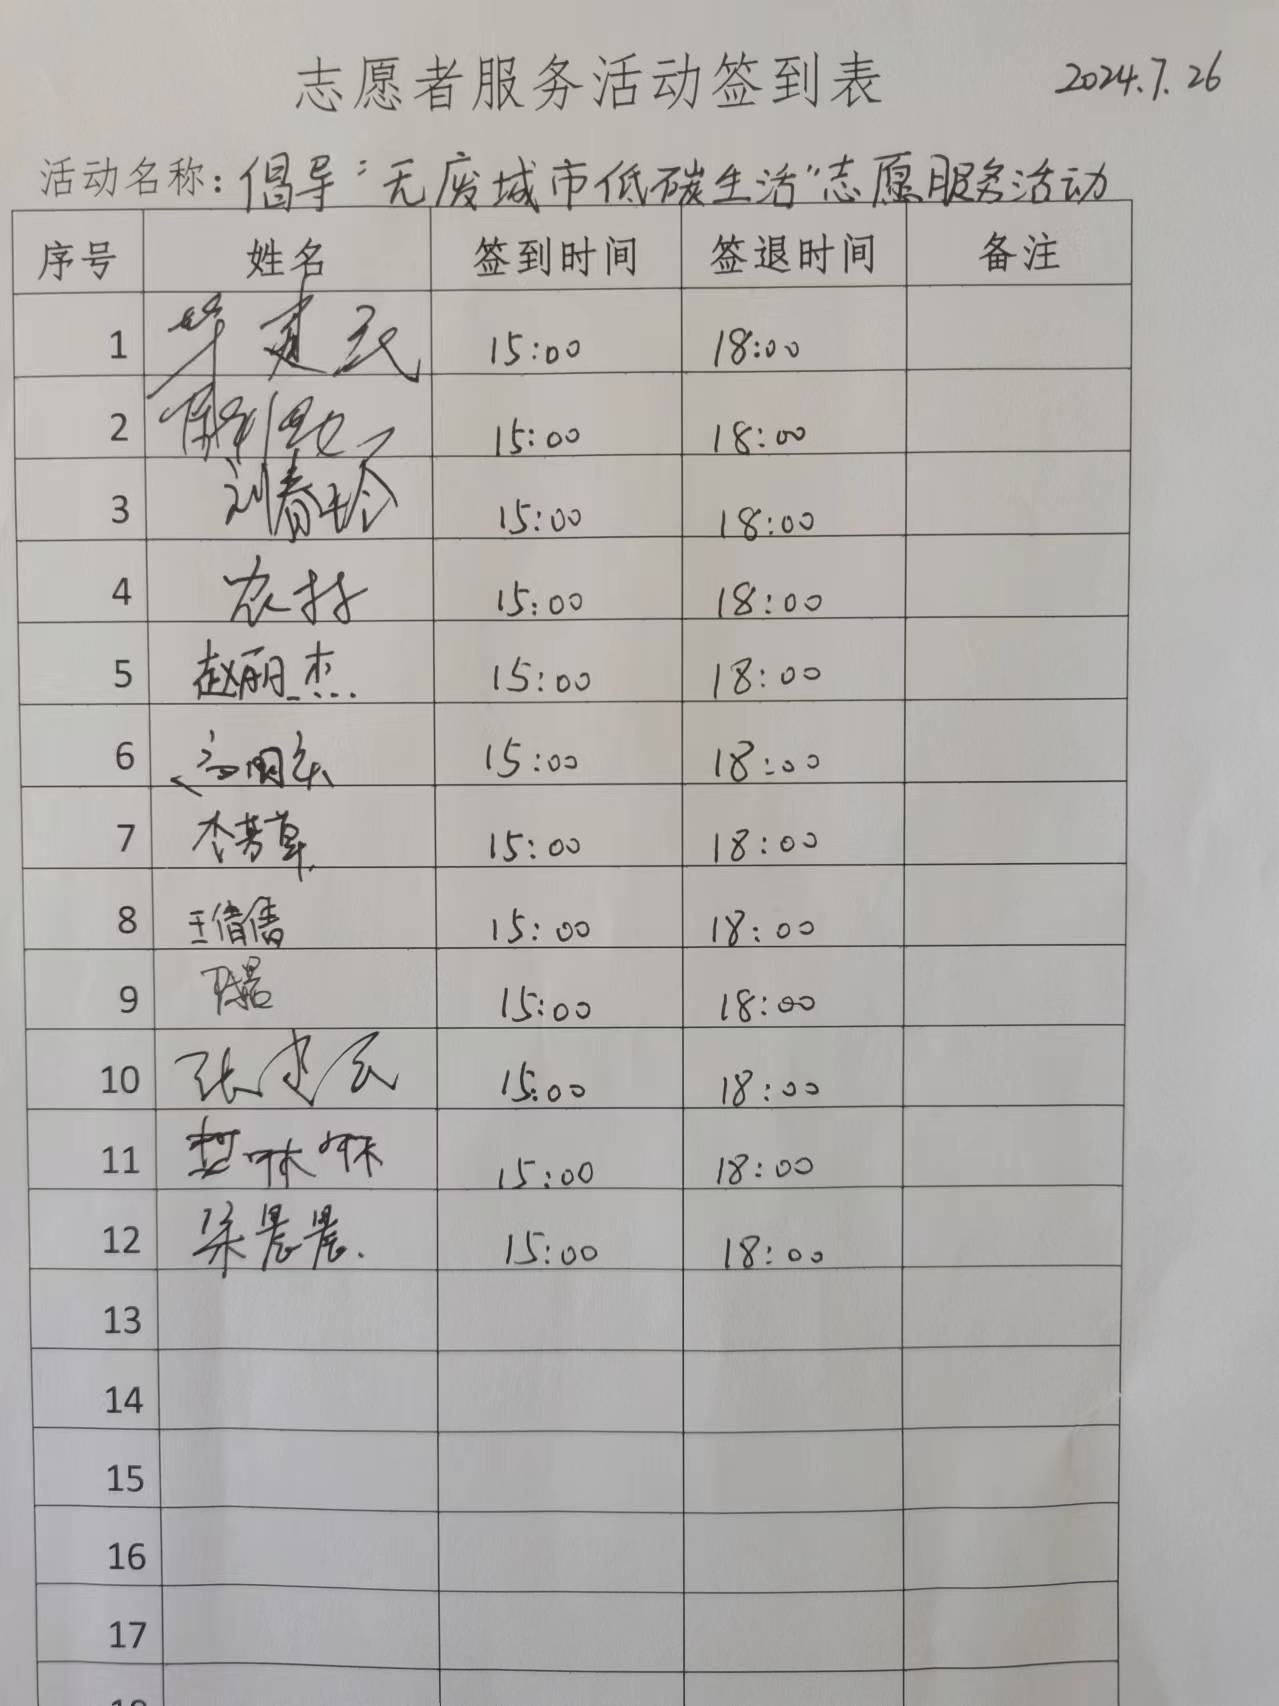 志愿者服务活动签到表 2024.7.26
活动名称:倡导"无废城市低碳生活"志愿服务活动
序号 姓名 签到时间 签退时间 备注
1 毕建民 15:00 18:00
2 15:00 18:00
3 刘春玲 15:00 18:00
4 15:00 18:00
5 赵丽杰 15:00 18:00
6 15:00 18:00
7 李芳草 15:00 18:00
8 王倩倩 15:00 18:00
9 15:00 18:00
10 张建民 15:00 18:00
11 15:00 18:00
12 晨晨. 15:00 18:00
13
14
15
16
17
18